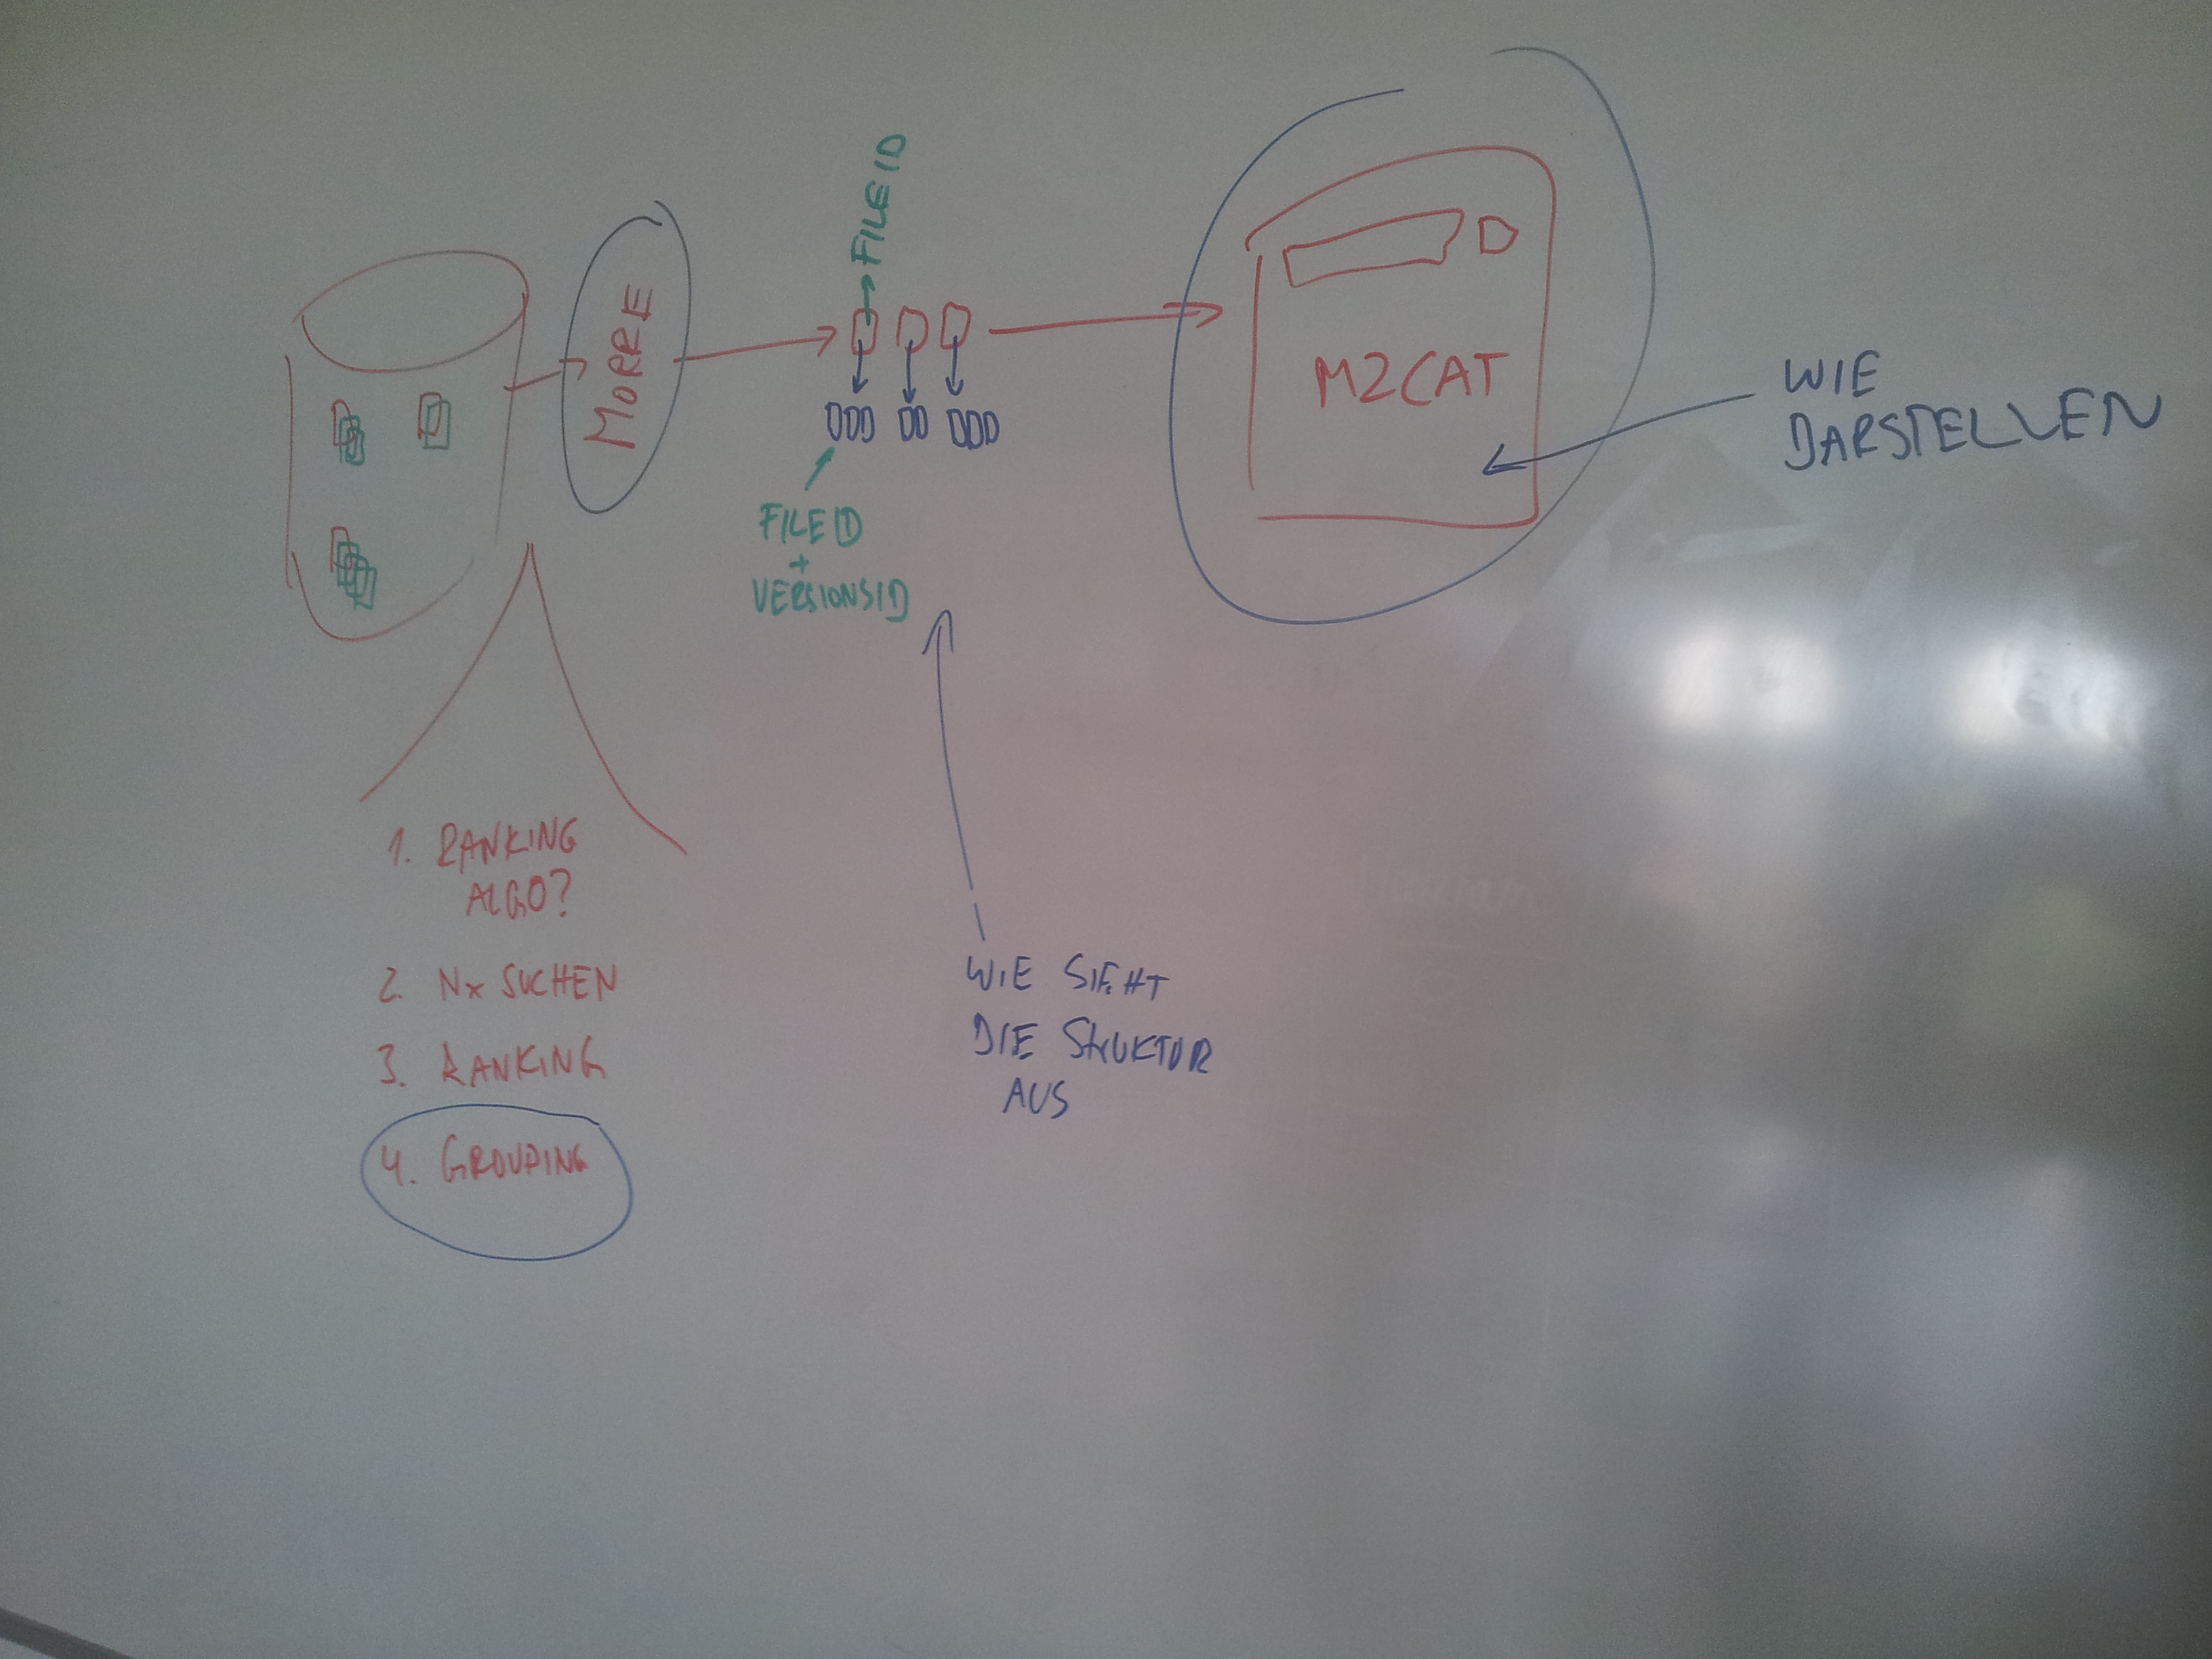 MORRE
→ FILEID
FILEID
+
VERSIONSID
M2CAT
WIE
DARSTELLEN
1. RANKING
ALGO?
2. Nx SUCHEN
3. RANKING
4. GROUPING
WIE SIEHT
DIE STRUKTUR
AUS